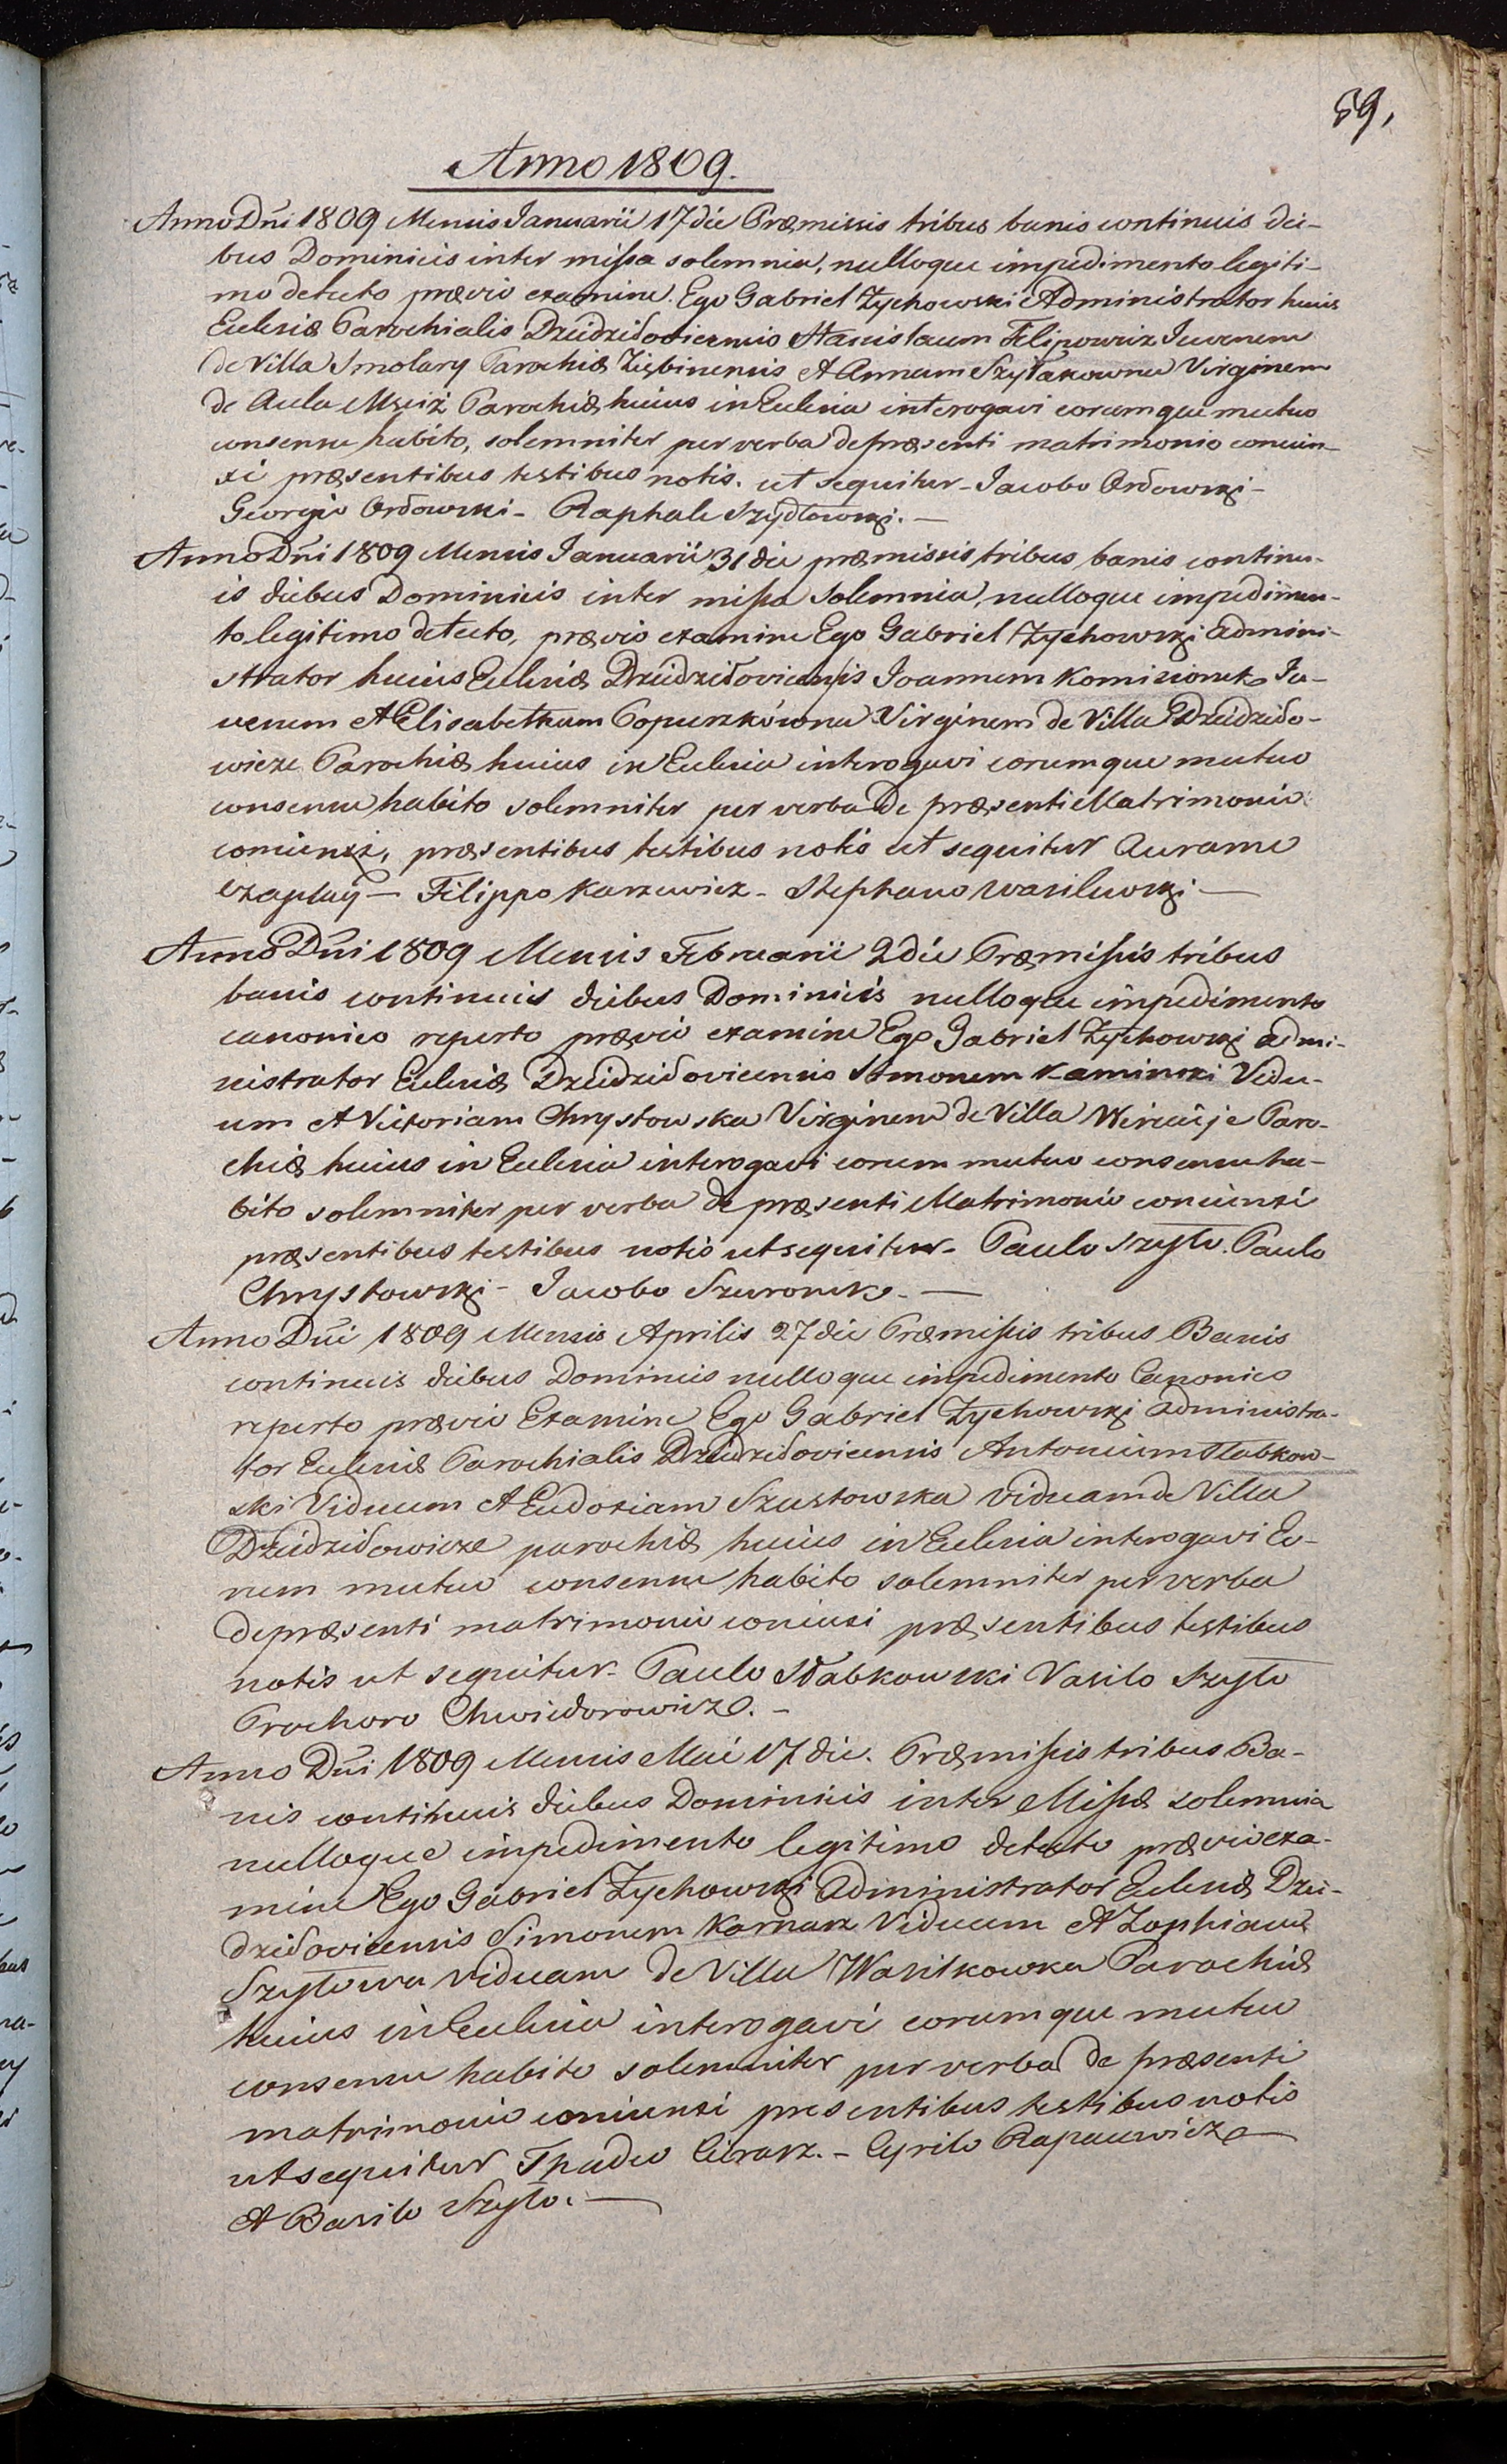 59,
Anno 1809.
Anno Dñi 1809 Mensis Januarii 17 die Præmissis tribus banis continuis die-
bus Dominicis inter missa solemnia, nulloque impedimento legiti-
mo detecto prævio examine. Ego Gabriel Zychowski Administrator huius
Eclesiæ Parochialis Dziedziłoviciensis Stanislaum Filipowicz Iuvenem
de Villa Smolary Parochiæ Ziębinensis et Annam Szyłakowna Virginem
de Aula Mściż Parochiæ huius in Eclesia interogavi eorumque mutuo
consensu habito, solemniter per verba de præsenti matrimonio coniun-
xi præsentibus testibus notis. ut sequitur - Iacobo Ordowski -
Georgio Ordowski - Raphale Szydłowski. -
Anno Dñi 1809 Mensis Januarii 31 die præmissis tribus banis continu-
is diebus Dominicis inter missa Solemnia, nulloque impedimen-
to legitimo detecto, prævio examine Ego Gabriel Zychowski admini-
strator huius Eclesiæ Dziedziłoviciensis Joannem Komisionek Iu-
venem et Elisabetham Popuszkówna Virginem de Villa Dziedziło-
wicze Parochiæ huius in Eclesia interogavi eorumque mutuo
consensu habito solemniter per verba de præsenti Matrimonio
coniunxi, præsentibus testibus notis ut sequitur Aurame
Czaplay - Filippo Karzewicz - Stephano Wasilewski -
Anno Dñi 1809 Mensis Februarii 2 die Præmissis tribus
banis continuis diebus Dominicis nulloque impedimento
canonico reperto prævio examine Ego Gabriel Zychowski admi-
nistrator Eclesiæ Dziedziłoviciensis Simonem Kaminski Vidu-
um et Victoriam Chrystowska Virginem de Villa Paro-
chiæ huius in Eclesia interogavi eorum mutuo consensu ha-
bito solemniter per verba de præsenti Matrimonio coniunxi
præsentibus testibus notis ut sequitur - Paulo Szyło. Paulo
Chrystowski - Jacobo Szuronek. -
Anno Dñi 1809 Mensis Aprilis 27 die Præmissis tribus Banis
continuis diebus Dominicis nulloque impedimento Canonico
reperto prævio Examine Ego Gabriel Zychowski administra-
tor Eclesiæ Parochialis Dziedziłoviciensis Antonium Słabkow-
ski Viduum et Eudoxiam Szustowska viduam de Villa
Dziedziłowicze parochiæ huius in Eclesia interogavi Eo-
rum mutuo consensu habito solemniter per verba
de præsenti matrimonio coniunxi præsentibus testibus
notis ut sequitur - Paulo Słabkowski Vasilo Szyło
Prochoro Chwiedorowicz. -
Anno Dñi 1809 Mensis Mai 17 die. Præmissis tribus Ba-
nis continuis diebus Dominicis inter Missæ solemnia
nulloque impedimento legitimo detecto prævio exa-
mine Ego Gabriel Zychowski Administrator Eclesiæ Dzie-
dziłoviciensis Simonem Karnasz Viduum et Zophiam
Szyłowa viduam de Villa Wasilkowka Parochiæ
huius in Eclesia interogavi eorumque mutuo
consensu habito solemniter per verba de præsenti
matrimonio coniunxi presentibus testibus notis
ut sequitur Thadeo Cirasz. - Cyrilo Rapacewicz -
et Basilo Szyło. -